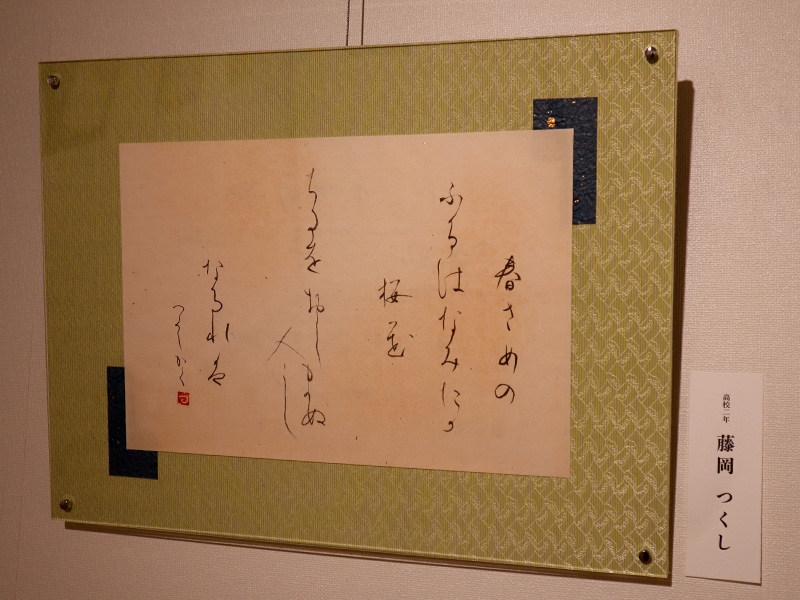 春さめの
ふるはなみたか
桜花
ちるをおしまぬ
人し
なけれは
つくしかく
高校二年
藤岡 つくし